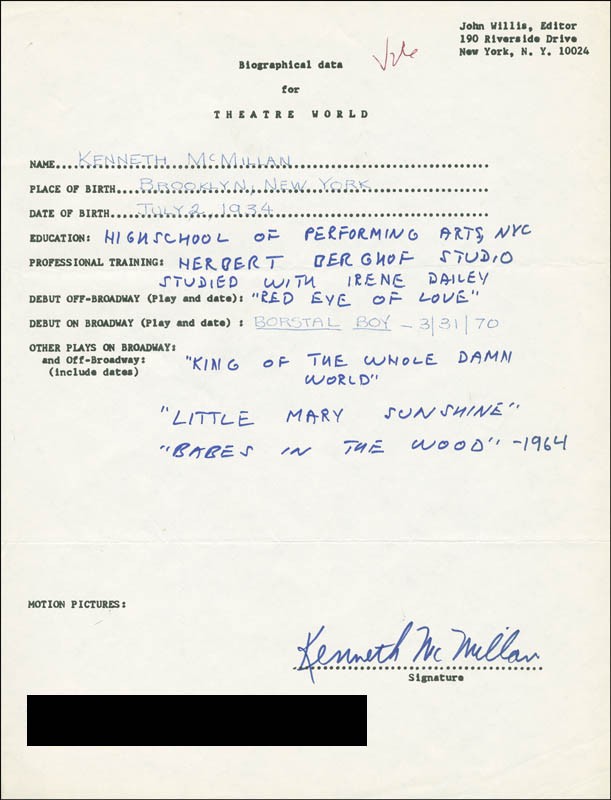 John Willis, Editor
190 Riverside Drive
New York, N. Y. 10024
Biographical data
for
THEATRE WORLD
NAME... KENNETH McMILLAN
PLACE OF BIRTH... BROOKLYN, NEW YORK
DATE OF BIRTH... JULY 2, 1934
EDUCATION: HIGHSCHOOL OF PERFORMING ARTS, NYC
PROFESSIONAL TRAINING: HERBERT BERGHOF STUDIO
STUDIED WITH IRENE DAILEY
DEBUT OFF-BROADWAY (Play and date): "RED EYE OF LOVE"
DEBUT ON BROADWAY (Play and date) : BORSTAL BOY - 3/31/70
OTHER PLAYS ON BROADWAY:
and Off-Broadway: "KING OF THE WHOLE DAMN
(include dates) WORLD"
"LITTLE MARY SUNSHINE"
"BABES IN THE WOOD" -1964
MOTION PICTURES:
Kenneth McMillan
Signature